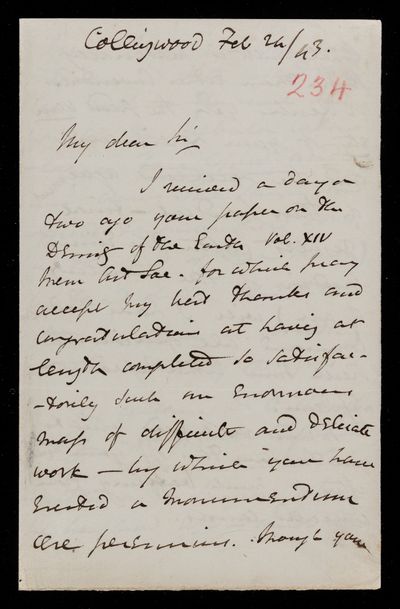 Collingwood Feb 24/43.
234
My dear Sir
I received a day or
two ago your paper on the
Density of the Earth Vol. XIV
Mem Ast Soc. for which pray
accept my best thanks and
congratulations at having at
length completed so satisfac-
-torily such an enormous
mass of difficult and delicate
work – by which you have
erected a monumentum
ære perennius. Though your